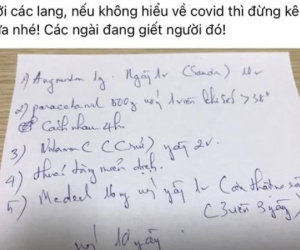 ời các lang, nếu không hiểu về covid thì đừng kê
ữa nhé! Các ngài đang giết người đó!
1) Augmentin 1g. Ngày 1v (Sandoz) 10v
2) paracetamol 500g uống 1 viên khi sốt > 38°
Cách nhau 4h.
3) Vitamin C (C Chủ) ngày 2v.
4) thuốc tăng miễn dịch.
5) Medrol 16g uố ngày 1v
(3 viên 3 ngày)
uố 10 ngày